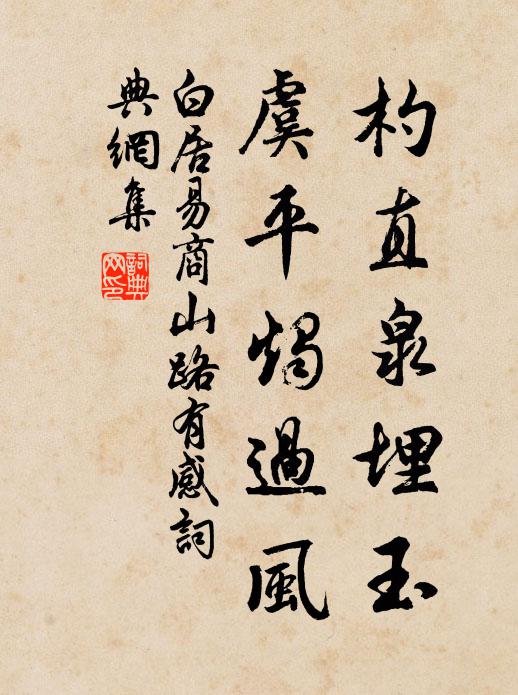 杓直泉埋玉
虞平燭過風
白居易商山路有感詞
典網集
詞典網印